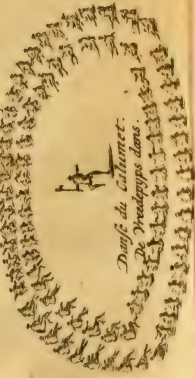 Danse du Calumet.
De Vreedpyps dans.